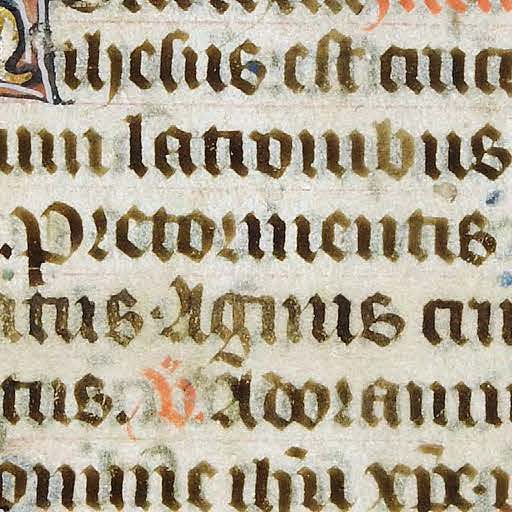 ihesus est cruc
um latronibus
. Pre tormentis
atus. Agnus cri
tus. V. Adoramu
omine ihu xpe